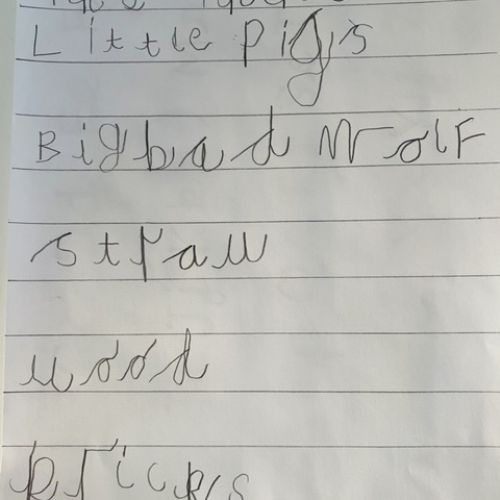 Little pigs
Big bad Wolf
straw
wood
bricks